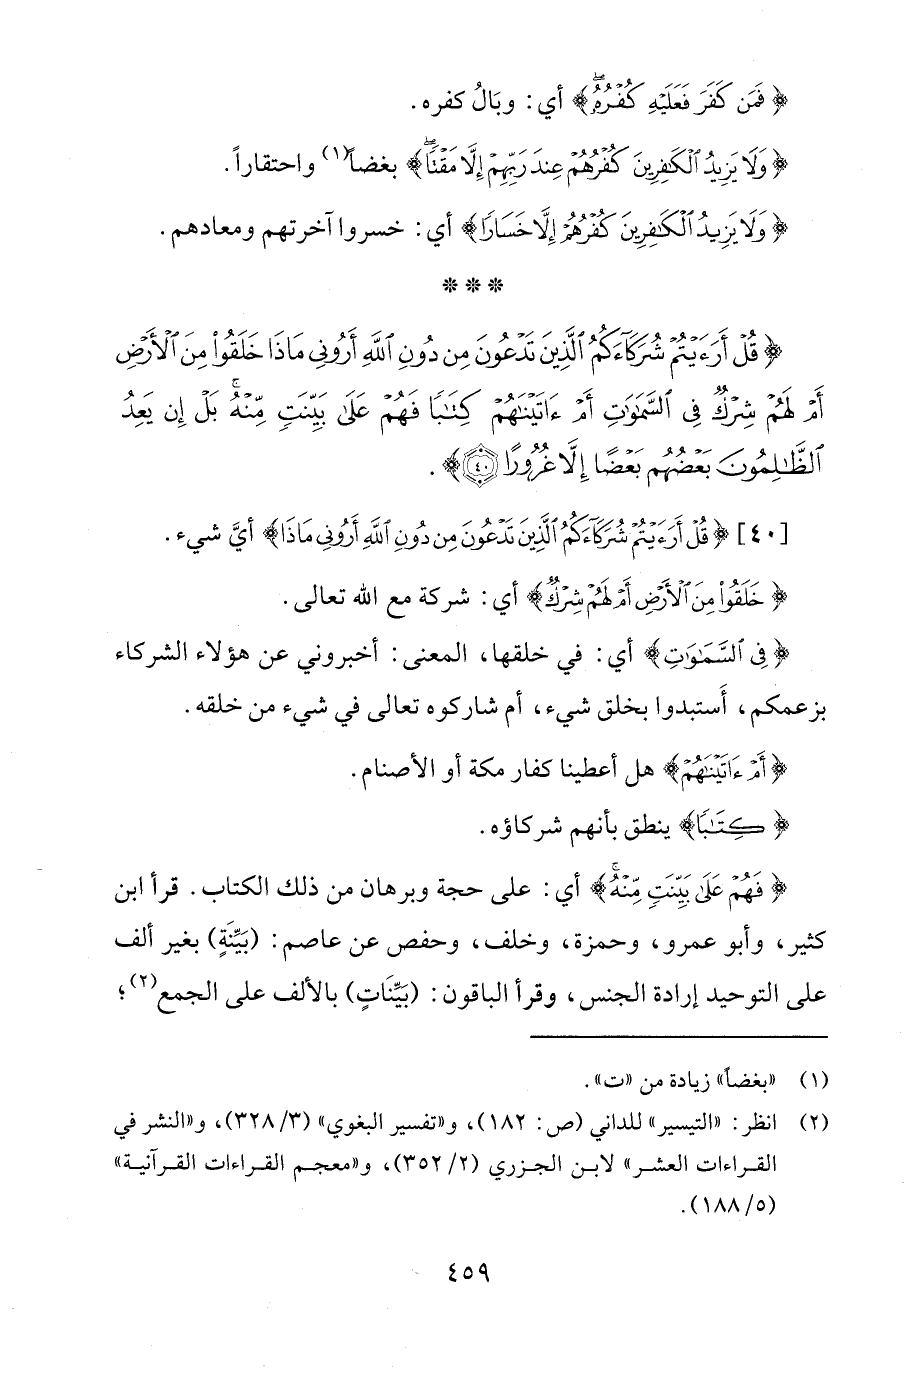 ﴿فَمَن كَفَرَ فَعَلَيْهِ كُفْرُهُۥ﴾ أي: وبَالُ كفره.
﴿وَلَا يَزِيدُ ٱلْكَٰفِرِينَ كُفْرُهُمْ عِندَ رَبِّهِمْ إِلَّا مَقْتًا﴾ بغضاً(١) واحتقاراً.
﴿وَلَا يَزِيدُ ٱلْكَٰفِرِينَ كُفْرُهُمْ إِلَّا خَسَارًا﴾ أي: خسروا آخرتهم ومعادهم.
* * *
﴿قُلْ أَرَءَيْتُمْ شُرَكَآءَكُمُ ٱلَّذِينَ تَدْعُونَ مِن دُونِ ٱللَّهِ أَرُونِى مَاذَا خَلَقُوا۟ مِنَ ٱلْأَرْضِ
أَمْ لَهُمْ شِرْكٌ فِى ٱلسَّمَٰوَٰتِ أَمْ ءَاتَيْنَٰهُمْ كِتَٰبًا فَهُمْ عَلَىٰ بَيِّنَتٍ مِّنْهُ ۚ بَلْ إِن يَعِدُ
ٱلظَّٰلِمُونَ بَعْضُهُم بَعْضًا إِلَّا غُرُورًا ۝٤٠﴾.
[٤٠] ﴿قُلْ أَرَءَيْتُمْ شُرَكَآءَكُمُ ٱلَّذِينَ تَدْعُونَ مِن دُونِ ٱللَّهِ أَرُونِى مَاذَا﴾ أيَّ شيء.
﴿خَلَقُوا۟ مِنَ ٱلْأَرْضِ أَمْ لَهُمْ شِرْكٌ﴾ أي: شركة مع الله تعالى.
﴿فِى ٱلسَّمَٰوَٰتِ﴾ أي: في خلقها، المعنى: أخبروني عن هؤلاء الشركاء
بزعمكم، أَستبدوا بخلق شيء، أم شاركوه تعالى في شيء من خلقه.
﴿أَمْ ءَاتَيْنَٰهُمْ﴾ هل أعطينا كفار مكة أو الأصنام.
﴿كِتَٰبًا﴾ ينطق بأنهم شركاؤه.
﴿فَهُمْ عَلَىٰ بَيِّنَتٍ مِّنْهُ ۚ﴾ أي: على حجة وبرهان من ذلك الكتاب. قرأ ابن
كثير، وأبو عمرو، وحمزة، وخلف، وحفص عن عاصم: (بَيِّنَةٍ) بغير ألف
على التوحيد إرادة الجنس، وقرأ الباقون: (بَيِّنَاتٍ) بالألف على الجمع(٢)؛
(١) «بغضاً» زيادة من «ت».
(٢) انظر: «التيسير» للداني (ص: ١٨٢)، و«تفسير البغوي» (٣/ ٣٢٨)، و«النشر في
القراءات العشر» لابن الجزري (٢/ ٣٥٢)، و«معجم القراءات القرآنية»
(٥/ ١٨٨).
٤٥٩